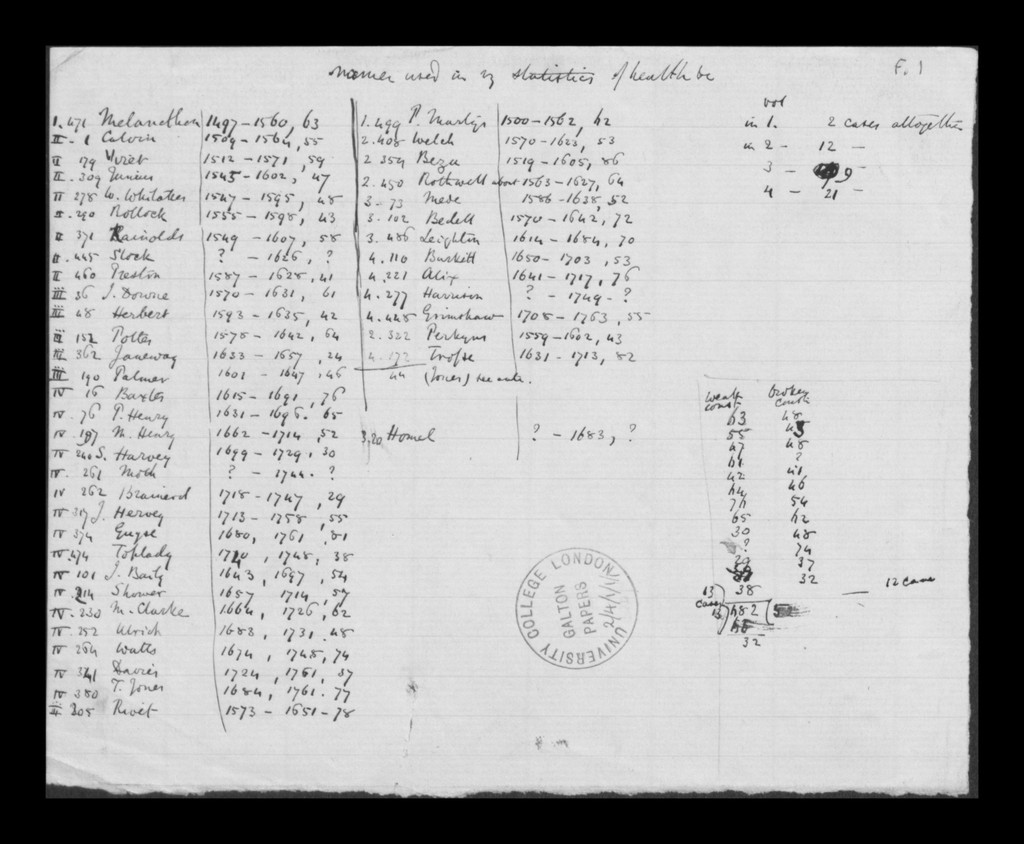 names used in my statistics of health &c
F. 1
I. 471 Melancthon 1497-1560, 63
II. 1 Calvin 1509-1564, 55
II 79 Viret 1512-1571, 59
II. 309 Junius 1545-1602, 47
II 278 W. Whitaker 1547-1595, 48
II. 290 Rollock 1555-1598, 43
II 371 Rainolds 1549-1607, 58
II. 445 Stock ? - 1626, ?
II 460 Preston 1587-1628, 41
III 36 J. Downe 1570-1631, 61
III 48 Herbert 1593-1635, 42
III 152 Potter 1578-1642, 64
III 362 Janeway 1633-1657, 24
III 190 Palmer 1601-1647, 46
IV 16 Baxter 1615-1691, 76
IV. 76 P. Henry 1631-1696. 65
IV. 197 M. Henry 1662-1714, 52
IV 240 S. Harvey 1699-1729. 30
IV. 261 Moth ? - 1744. ?
IV 262 Brainerd 1718-1747, 29
IV 317 J. Hervey 1713-1758, 55
IV 374 Guyse 1680, 1761, 81
IV 474 Toplady 1740, 1748, 38
IV 101 J. Baily 1643, 1697, 54
IV 214 Shower 1657 1714, 57
IV. 230 M. Clarke 1664, 1726, 62
IV. 252 Ulrich 1683, 1731. 48
IV 264 Watts 1674, 1748, 74
IV 341 Davies 1724, 1761, 37
IV 380 T. Jones 1684, 1761. 77
II 205 Rivet 1573-1651-78
1. 499 P. Martyr 1500-1562, 62
2. 408 Welch 1570-1623, 53
2 354 Beza 1519-1605, 86
2. 450 Rothwell about 1563-1627, 64
3. 73 Mede 1586-1638, 52
3. 102 Bedell 1570-1642, 72
3. 486 Leighton 1614-1684, 70
4. 110 Burkitt 1650-1703, 53
4. 221 Alix 1641-1717, 76
4. 277 Harrison ? - 1749-?
4. 448 Grimshaw 1708-1763, 55
2. 322 Perkyns 1559-1602, 43
4. 172 Trosse 1631-1713, 82
44 (Jones) see note.
3. 20 Homel ? - 1683, ?
vol
in 1. 2 cases altogether
in 2 - 12 -
3 - 9 -
4 - 21 -
weak const. broken const.
63 48
55 43
47 48
61 ?
42 41
64 46
76 54
65 62
30 48
? 74
29 37
32
38
12 cases
13 cases
13 682
32
UNIVERSITY COLLEGE LONDON
GALTON PAPERS
2/4/1/1/1